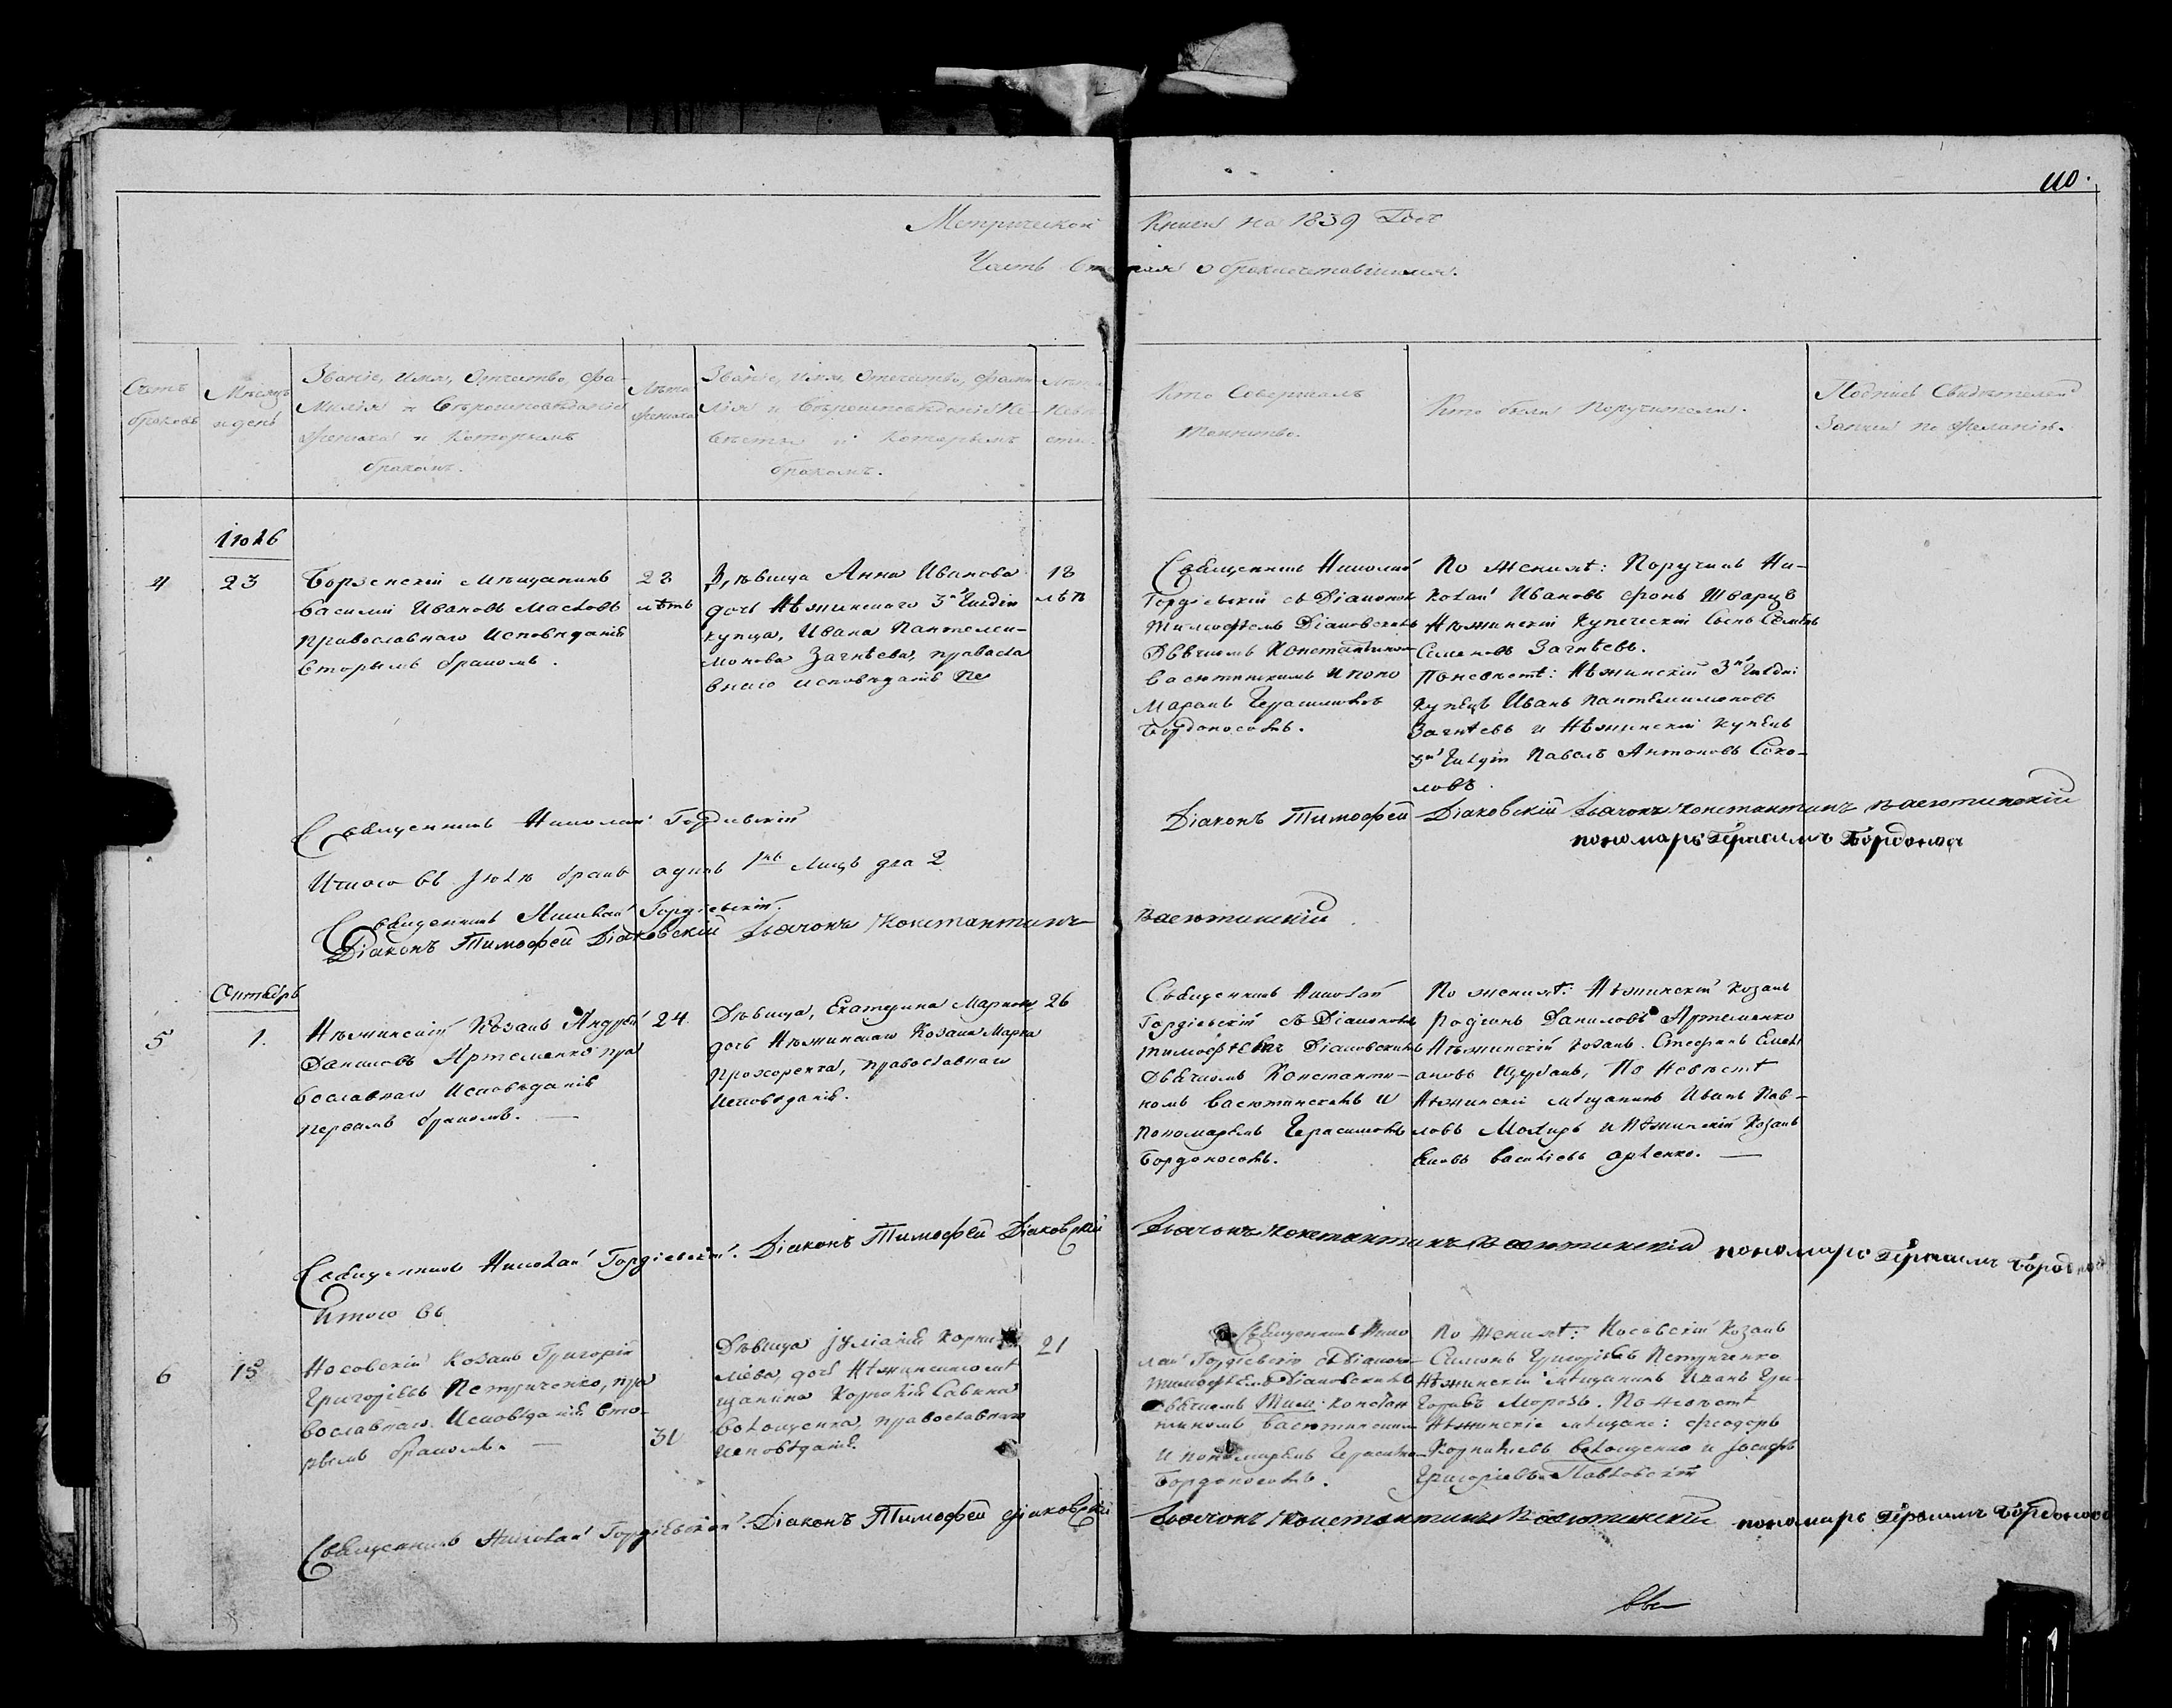 110.
Метрической Книги на 1839 Годъ
Часть Вторая о бракосочетавшихся.
Счетъ браковъ
Мѣсяцъ и день
Званіе, имя, Отчество, фа-
милія и вѣроисповѣданіе
жениха и которымъ
бракомъ.
Лѣта жениха
Званіе, имя, Отечество, фами-
лія и вѣроисповѣданіе Не-
вѣсты и которымъ
бракомъ.
Лѣта Невѣсты
Кто Совершалъ
таинство.
Кто были Поручители.
Подпись Свидѣтелей
Записи по желанію.
Іюль
4
23
Борзенскій мѣщанинъ
Василій Ивановъ Масловъ
православнаго исповѣданія
вторымъ бракомъ.
28
лѣтъ
Дѣвица Анна Иванова
дочь Нѣжинскаго 3й Гилдіи
купца, Ивана Пантелеи-
монова Загнѣева, правосла
внаго исповѣданія
18
лѣтъ
Священникъ Николай
Гордіевскій съ Діакономъ
Тимофѣемъ Діаковскимъ
Дьячкомъ Константиномъ
Васютинскимъ и поно
маремъ Герасимомъ
Бордоносомъ.
По женихѣ: Поручикъ Ни-
колай Ивановъ фонъ Шварцъ
Нѣжинскій Купеческій Сынъ Семенъ
Семеновъ Загнѣевъ.
По невѣстѣ: Нѣжинскій 3й Гилдіи
купецъ Иванъ Пантелимоновъ
Загнѣевъ и Нѣжинскій купецъ
3й Гилдіи Павелъ Антоновъ Соко-
ловъ.
Священникъ Николай Гордіевскій
Діаконъ Тимофей Діаковскій Дьячокъ Константинъ Васютинскій
пономарь Герасимъ Бордонос
Итого въ Іюлѣ бракъ одинъ 1нъ Лицъ два 2
Священникъ Николай Гордіевскій.
Діаконъ Тимофей Діаковскій Дьячокъ Константинъ Васютинскій
Октябрь
5
1.
Нѣжинскій Козакъ Андрей
Даниловъ Артеменко пра
вославнаго исповѣданія
первымъ бракомъ.
24
Дѣвица, Екатерина Маркова
дочь Нѣжинскаго Козака Марка
Прохоренка, православнаго
исповѣданія.
26
Священникъ Николай
Гордіевскій съ Діакономъ
Тимофѣемъ Діаковскимъ
Дьячкомъ Константи-
номъ Васютинскимъ и
Пономаремъ Герасимомъ
Бордоносомъ.
По женихѣ: Нѣжинскій Козакъ
Родіонъ Даниловъ Артеменко
Нѣжинскій Козакъ Стефанъ Емели
ановъ По Невѣстѣ
Нѣжинскій мѣщанинъ Иванъ Пав-
ловъ и Нѣжинскій Козакъ
Васильевъ
Священникъ Николай Гордіевскій. Діаконъ Тимофей Діаковскій
Дьячокъ Константинъ Васютинскій пономарь Герасимъ Бордонос
Итого въ
6
15
Носовскій Козакъ Григорій
Григорьевъ Петриченко, пра
вославнаго исповѣданія вто-
рымъ бракомъ.
31
Дѣвица Іуліанія Корни
лова, дочь Нѣжинскаго мѣ
щанина Корнилія Савина
Волощенка, православнаго
исповѣданія.
21
Священникъ Нико
лай Гордіевскій съ Діакономъ
Тимофѣемъ Діаковскимъ
Дьячкомъ Тим: Констан
тиномъ Васютинскимъ
и пономаремъ Герасимомъ
Бордоносомъ.
По женихѣ: Носовскій Козакъ
Симонъ Григорьевъ Петриченко
Нѣжинскій мѣщанинъ Иванъ Гри-
горьевъ Морозъ. По невѣстѣ
Нѣжинскіе мѣщане: Феодоръ
Корниліевъ Волощенко и Іосифъ
Григоріевъ Павловскій
Священникъ Николай Гордіевскій. Діаконъ Тимофей Діаковскій
Дьячокъ Константинъ Васютинскій пономарь Герасимъ Бордонос